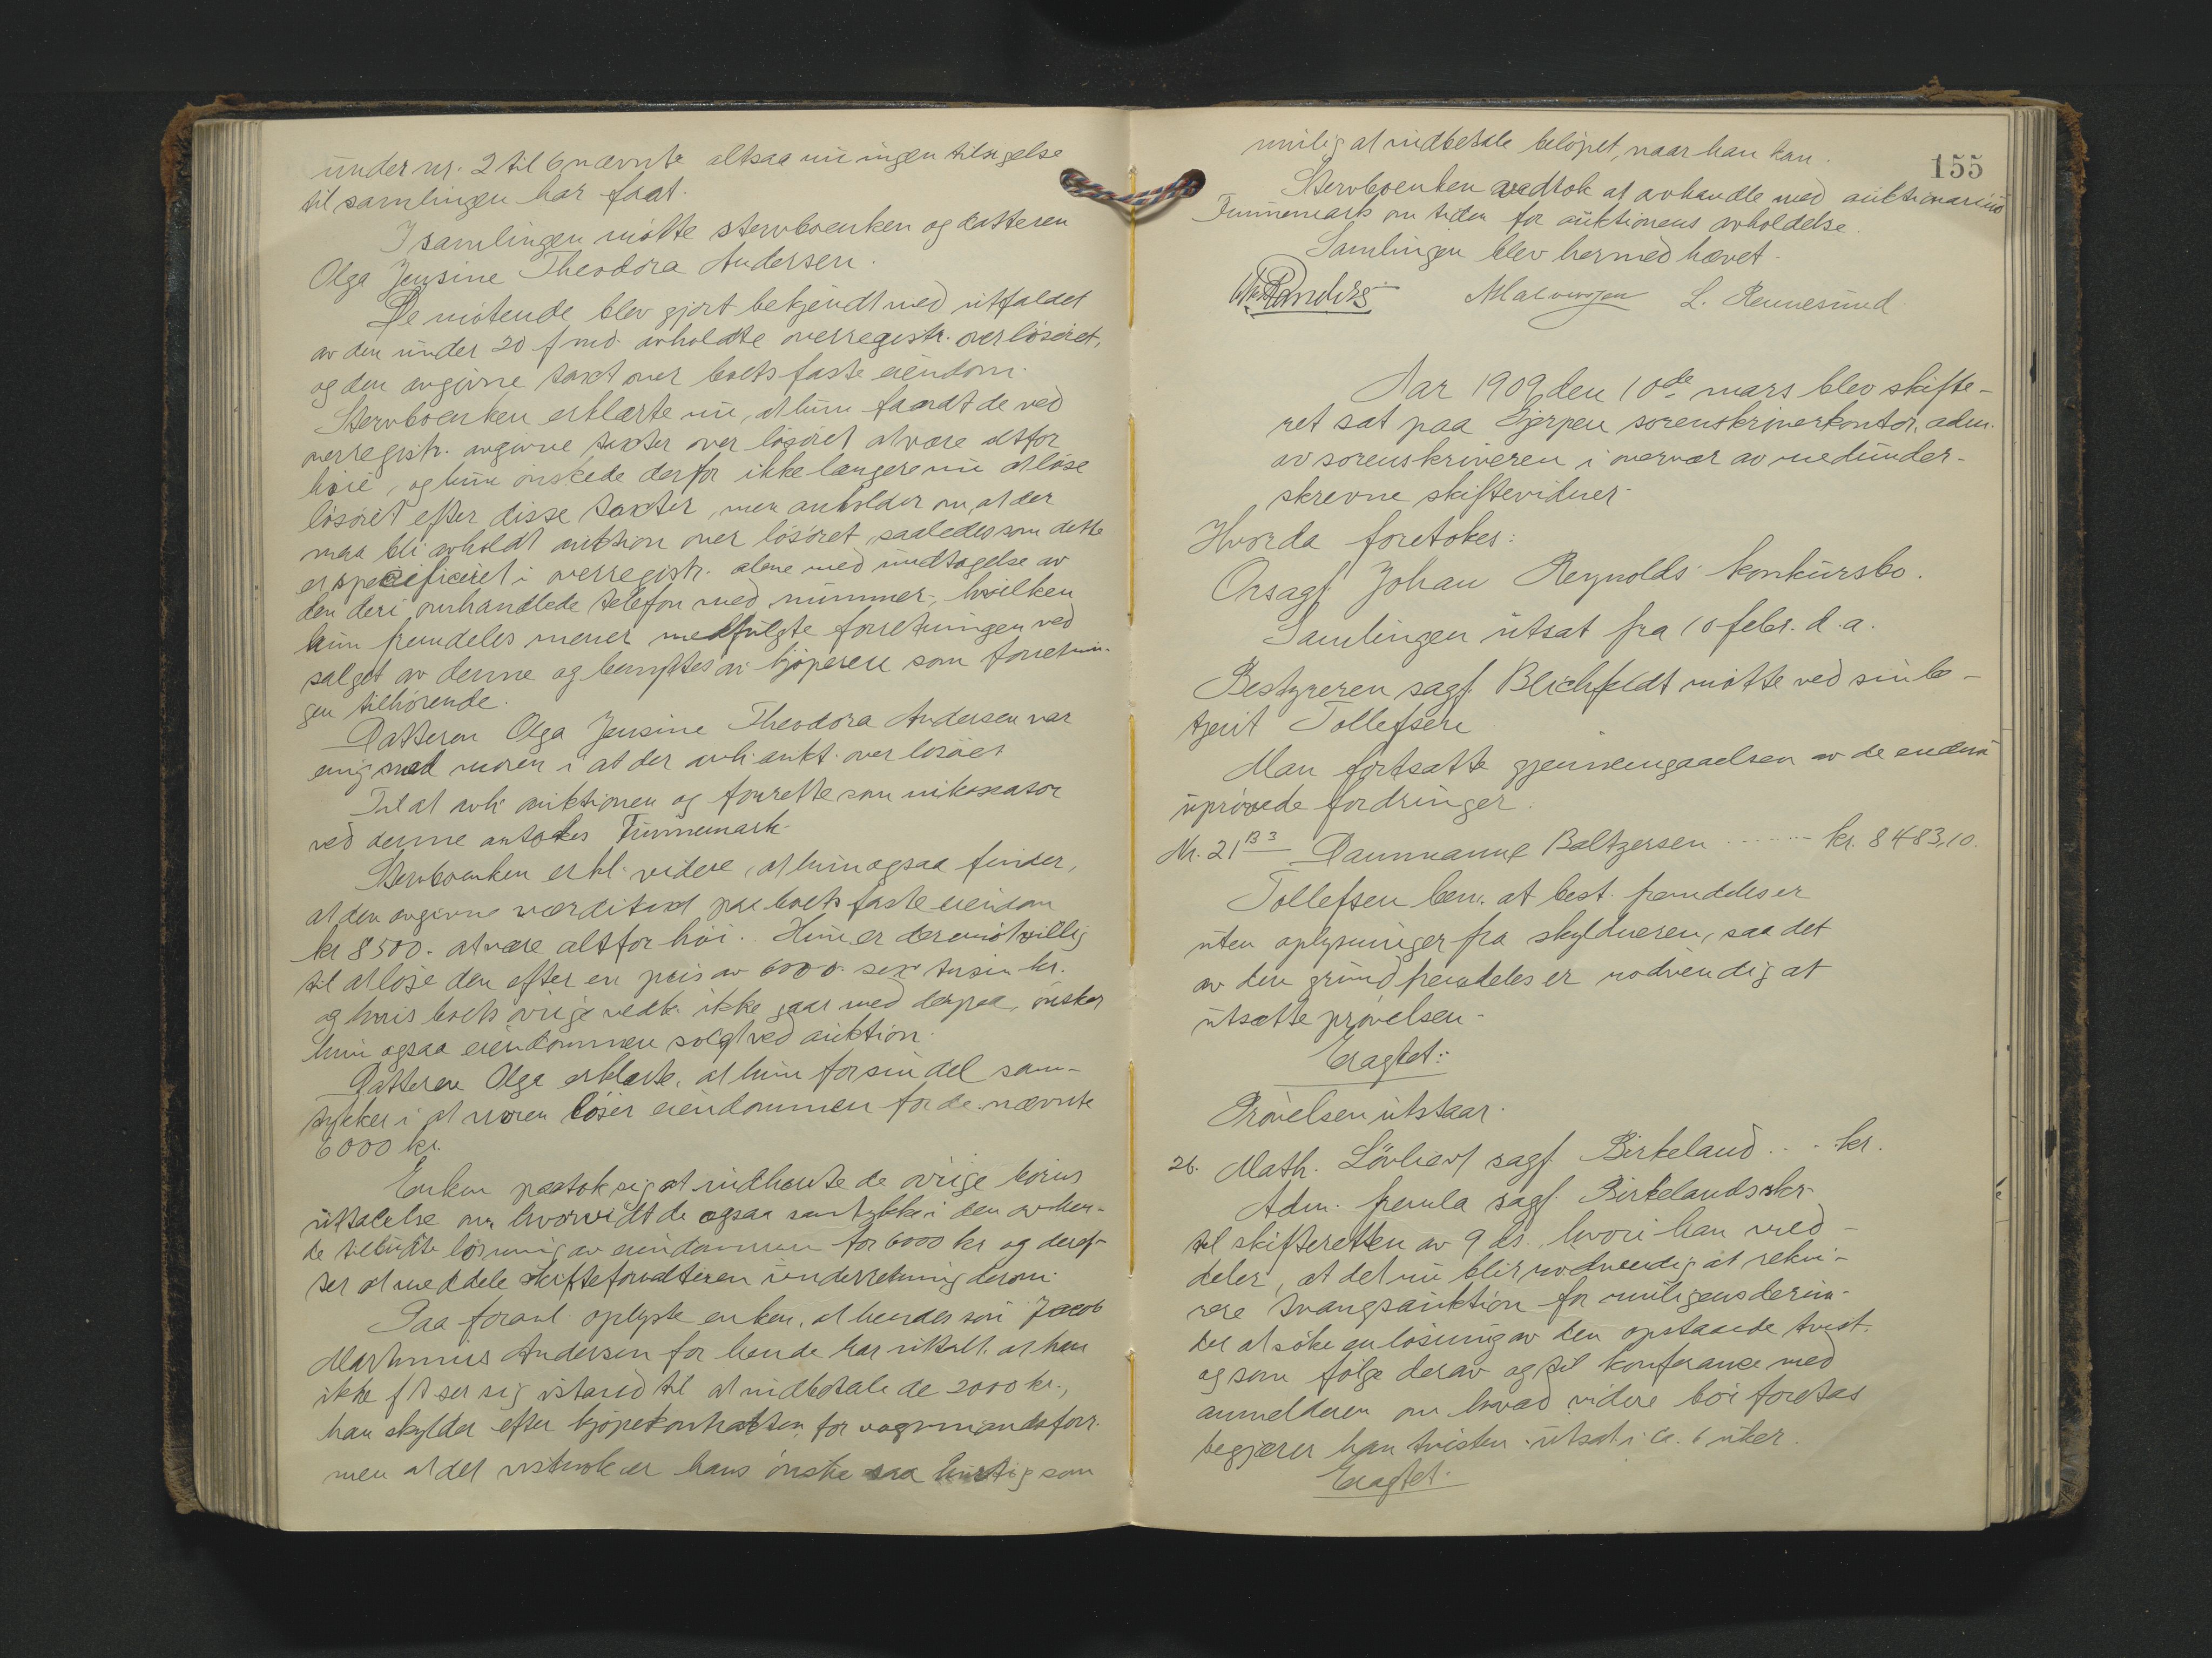 under nr. 2 til 6 nævnte altsaa nu ingen tilsigelse
til samlingen har faat.
I samlingen møtte stervboenken og datteren
Olga Jensine Theodora Andersen.
De møtende blev gjort bekjendt med utfaldet
av den under 20 f md. avholdte overregistr. over løsøret,
og den avgivne taxt over boets faste eiendom.
Stervboenken erklærte nu, at hun fandt de ved
overregistr. avgivne taxter over løsøret at være altfor
høie, og hun ønskede derfor ikke længere nu at løse
løsøret efter disse taxter, men anholder om, at der
maa bli avholdt auktion over løsøret, saaledes som dette
er specificeret i overregistr. alene med undtagelse av
den deri omhandlede telefon med nummer, hvilken
hun fremdeles mener medfulgte forretningen ved
salget av denne og benyttes av kjøperen som forretnin-
gen tilhørende.
Datteren Olga Jensine Theodora Andersen var
enig med moren i at der avh. aukt. over løsøret
Til at avh. auktionen og forrette som inkassator
ved denne antokes Funnemark.
Stervboenken erkl. videre, at hun ogsaa finder,
at den avgivne værditaxt paa boets faste eiendom
kr 8500. at være altfor høi. Hun er derimot villig
til at løse den efter en pris av 6000. sex tusin kr.
og hvis boets øvrige vedk. ikke gaar med derpaa, ønsker
hun ogsaa eiendommen solgt ved auktion.
Datteren Olga erklærte, at hun for sin del sam-
tykker i at moren løser eiendommen for de nævnte
6000 kr.
Enken paatok sig at indhente de øvrige
uttalelse om hvorvidt de ogsaa samtykke i den av hen-
de tilbudte løsning av eiendommen for 6000 kr og deref-
ter at meddele skifteforvalteren underretning derom.
Paa foranl. oplyste enken, at hendes søn Jacob
Marthinius Andersen for hende har uttalt. at han
ikke f t ser sig istand til at indbetale de 2000 kr.,
han skylder efter kjøpekontrakten for vognmandsforr.
men at det er hans ønske saa hurtig som
155
mulig at indbetale beløpet, naar han kan.
Stervboenken vedtok at avhandle med auktionarius
Funnemark om tiden for auktionens avholdelse.
Samlingen blev hermed hævet.
L. Rennesund.
Aar 1909 den 10de mars blev skifte-
ret sat paa Gjerpen sorenskriverkontor, adm.
av sorenskriveren i overvær av medunder-
skrevne skiftevidner.
Hvorda foretokes:
Orsagf. Johan Reynolds konkursbo.
Samlingen utsat fra 10 febr. d. a.
Bestyreren sagf. Blichfeldt møtte ved sin be-
tjent Tollefsen
Man fortsatte gjennemgaaelsen av de endnu
uprøvede fordringer.
Nr. 21 B 3 Dannanne Baltzersen ...... kr. 8483,10.
Tollefsen bem. at best. fremdeles er
uten oplysninger fra skyldneren, saa det
av den grund fremdeles er nødvendig at
utsætte prøvelsen.
Eragtet:
Prøvelsen utstaar.
26. Math. Løvlie v/ sagf. Birkeland ... kr.
Adm. fremla sagf. Birkelands skr.
til skifteretten av 9 ds. hvori han med-
deler, at det nu blir nødvendig at rekvi-
rere tvangsauktion for muligens derun-
der at søke en løsning av den opstaaede tvist,
og som følge derav og til konferance med
anmelderen om hvad videre bør foretas
begjærer han tvisten utsat i ca. 6 uker.
Eragtet.